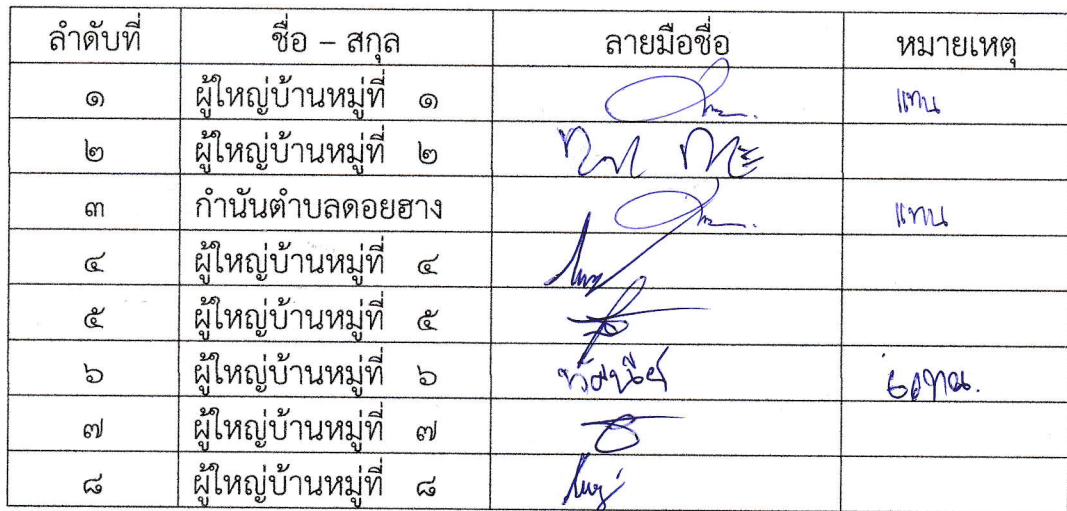 ลำดับที่ ชื่อ – สกุล ลายมือชื่อ หมายเหตุ
๑ ผู้ใหญ่บ้านหมู่ที่ ๑ แทน
๒ ผู้ใหญ่บ้านหมู่ที่ ๒
๓ กำนันตำบลดอยฮาง แทน
๔ ผู้ใหญ่บ้านหมู่ที่ ๔
๕ ผู้ใหญ่บ้านหมู่ที่ ๕
๖ ผู้ใหญ่บ้านหมู่ที่ ๖ ทัศนีย์
๗ ผู้ใหญ่บ้านหมู่ที่ ๗
๘ ผู้ใหญ่บ้านหมู่ที่ ๘